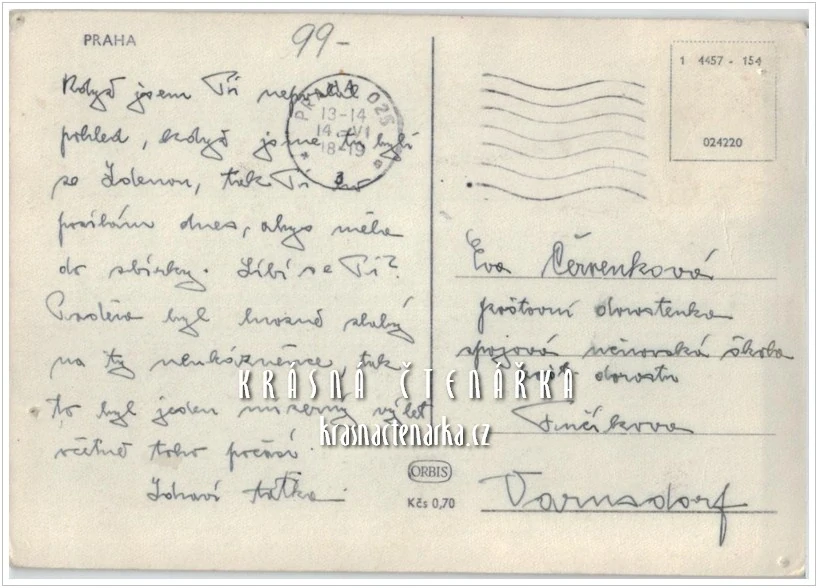 PRAHA
99-
Když jsem Ti neposlal
pohled, když jsme tu byli
se Zdenou, tak Ti ho
posílám dnes, abys měla
do sbírky. Líbí se Ti?
Praděda byl hrozně slabý
na ty neukázněnce, tak
to byl jeden mizerný výlet
včetně toho počasí.
Zdraví taťka
13-14
14. VI
3
1 4457 - 154
024220
Eva Červenková
poštovní dorostenka
spojová učňovská škola
dorostu
Varnsdorf
ORBIS
Kčs 0,70
KRÁSNÁ ČTENÁŘKA
krasnactenarka.cz